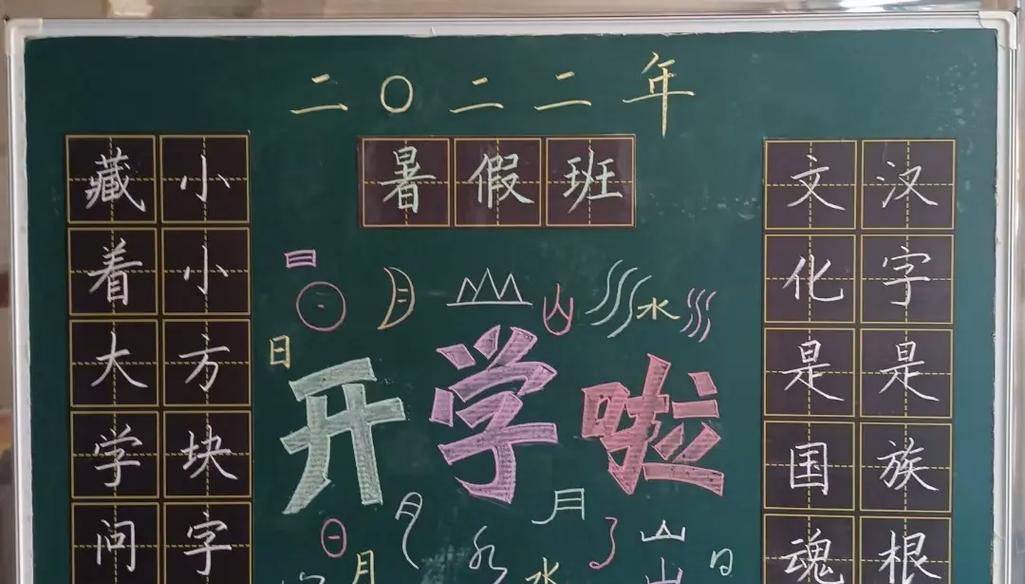 二〇二二年
暑假班
小小方块字
藏着大学问
汉字是族根
文化是国魂
日
水
开学啦
月
山
月
水